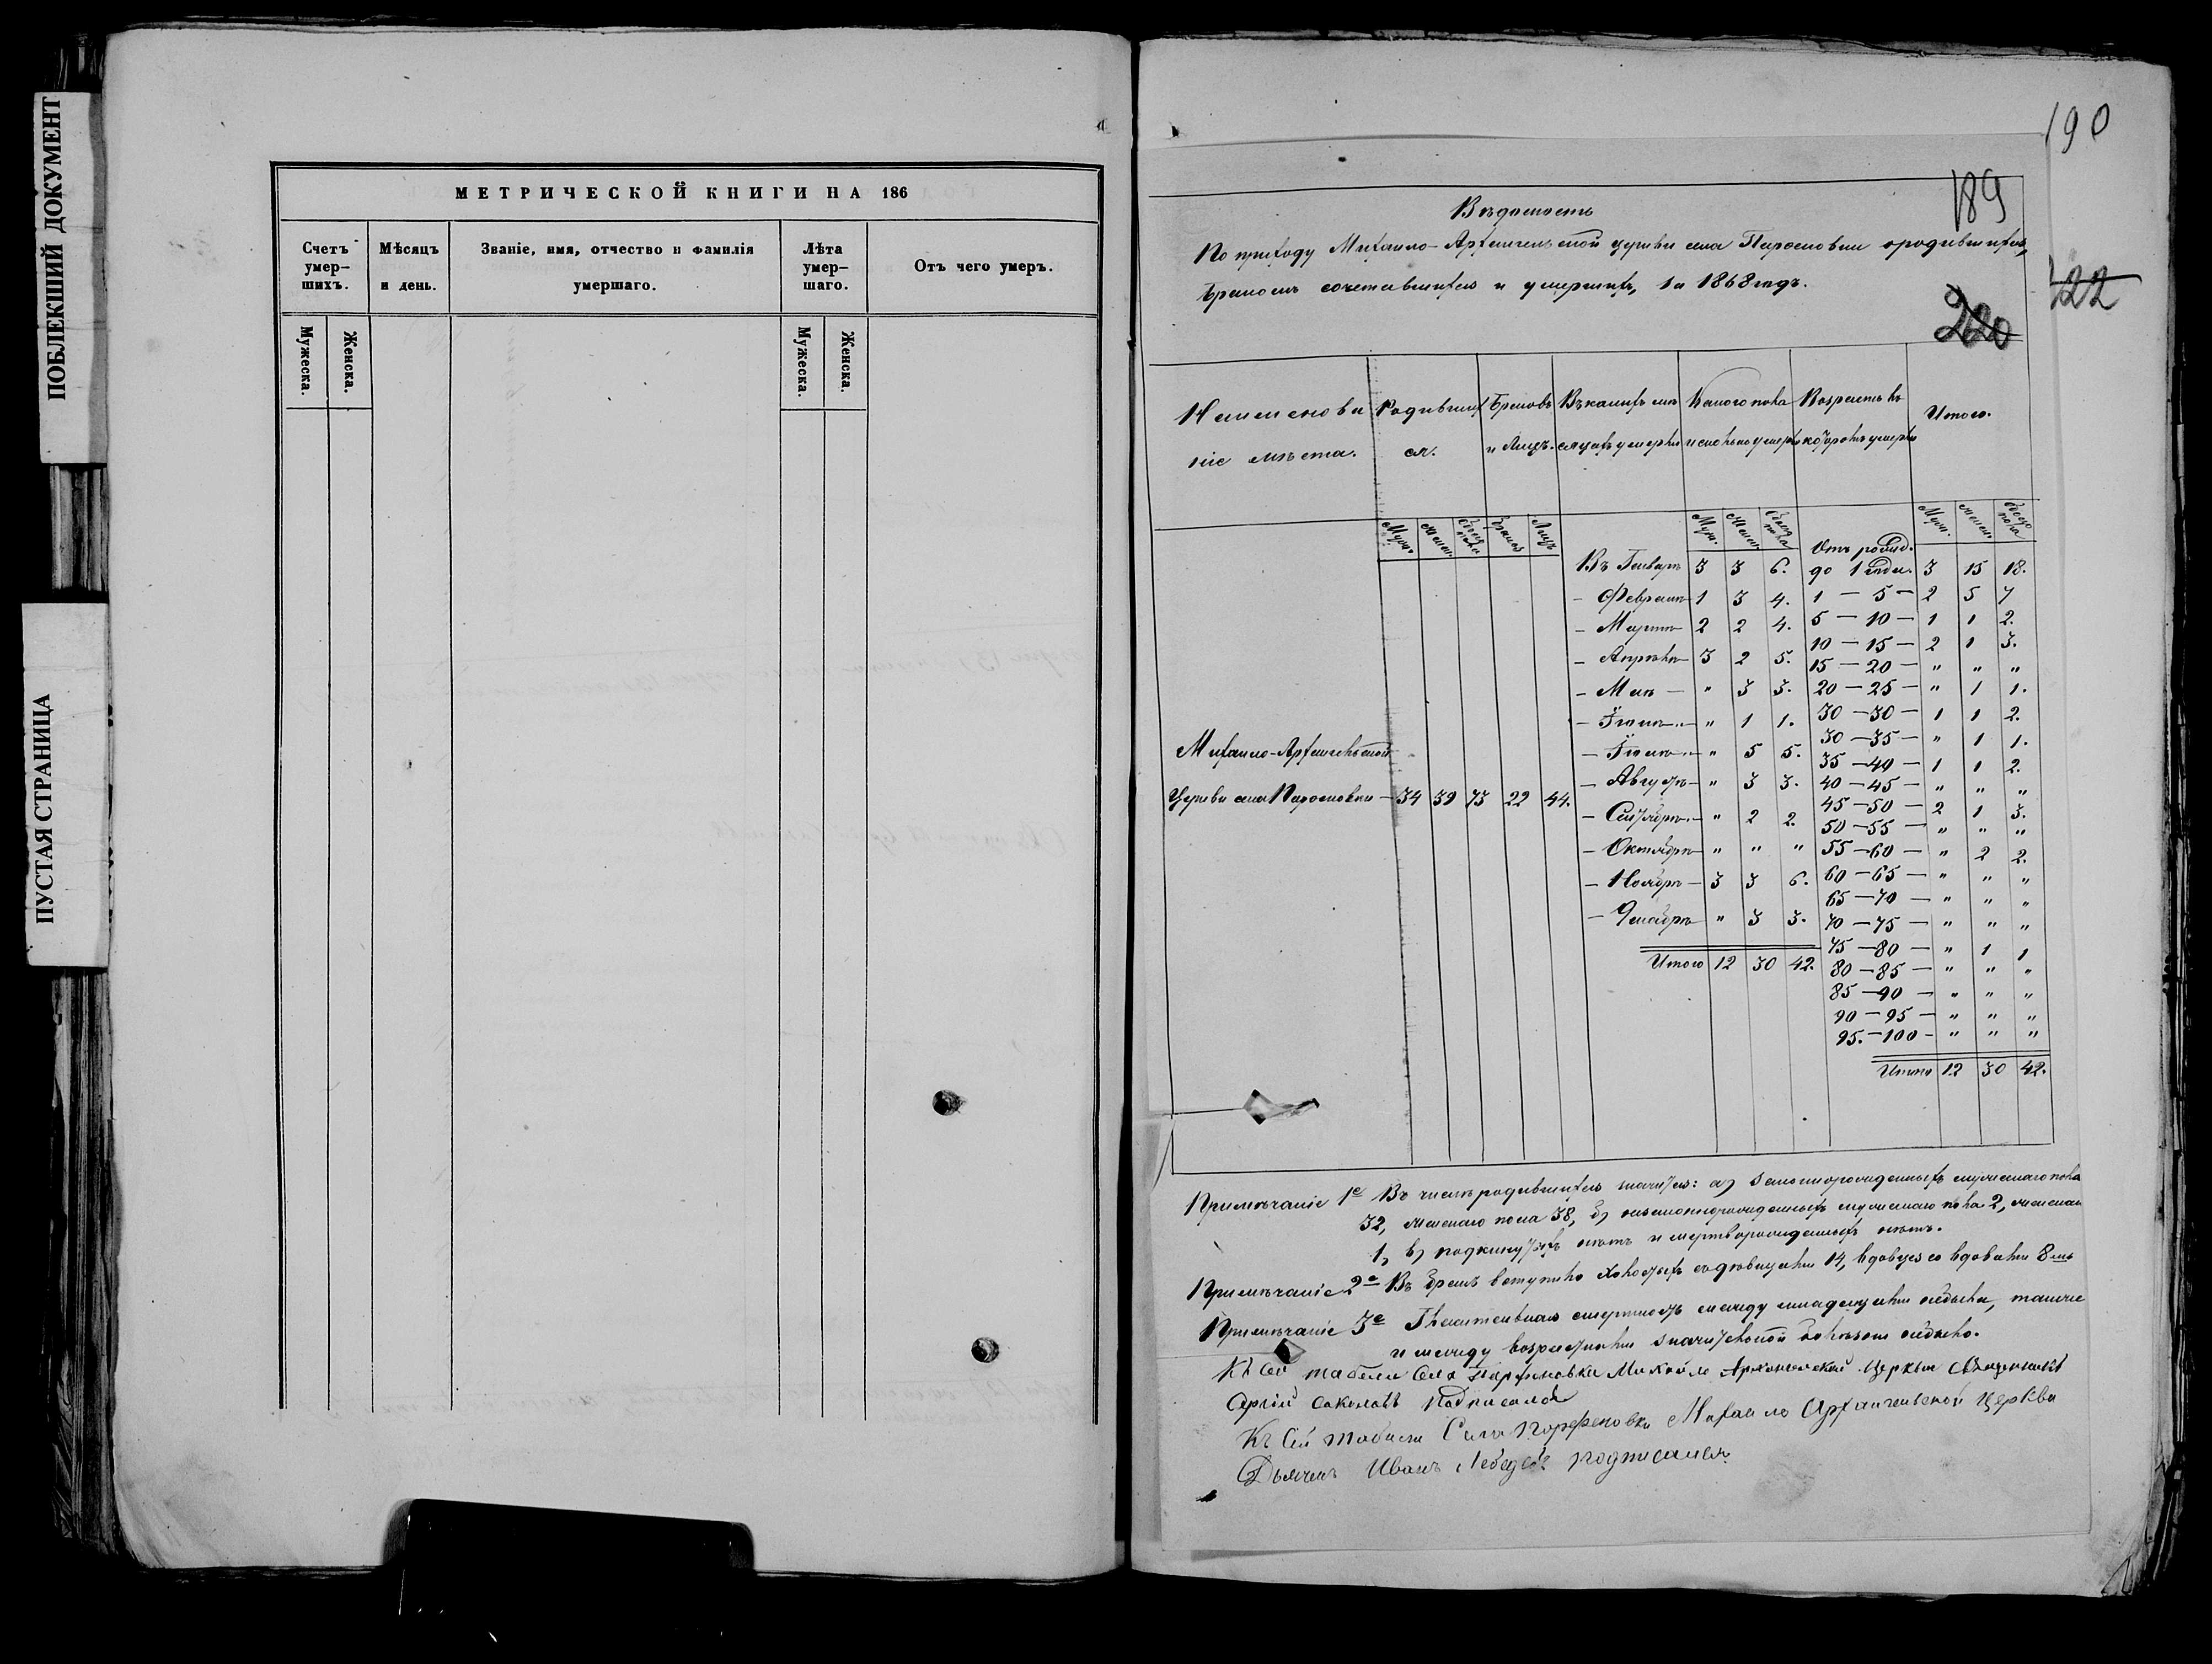 ПОБЛЕКШИЙ ДОКУМЕНТ
ПУСТАЯ СТРАНИЦА
МЕТРИЧЕСКОЙ КНИГИ НА 186
Счетъ умер-шихъ. Мѣсяцъ и день. Званіе, имя, отчество и фамилія умершаго. Лѣта умер-шаго. Отъ чего умеръ.
Мужеска. Женска. Мужеска. Женска.
190
189
Вѣдомость
По приходу Михаило-Архангельской церкви села Парфеновки о родившихся,
бракомъ сочетавшихся и умершихъ, за 1868 годъ.
122
220
Наименова Родивших Браковъ Въ какихъ мѣ Какого пола Возрастъ въ Итого.
ніе мѣста. ся. и Лицъ. сяцахъ умерли и сколько умерло которомъ умерли
Муж. Женск. обоего пола браков Лицъ Муж. Женск. обоего пола Муж. Женск. обоего пола
Отъ рожд.
Въ Генварѣ 3 3 6. до 1 года. 3 15 18.
- Февралѣ 1 3 4. 1 — 5 — 2 5 7
- Мартѣ 2 2 4. 5 — 10 — 1 1 2.
10 — 15 — 2 1 3.
- Апрѣлѣ 3 2 5. 15 — 20 — " " "
- Маѣ — " 3 3. 20 — 25 — " 1 1.
- Іюнѣ — " 1 1. 30 — 30 — 1 1 2.
30 — 35 — " 1 1.
Михаило-Архангельской - Іюлѣ — " 5 5. 35 — 40 — 1 1 2.
- Августѣ — " 3 3. 40 — 45 — " " "
Церкви села Парфеновки — 34 39 73 22 44. 45 — 50 — 2 1 3.
- Сентябрѣ — " 2 2. 50 — 55 — " " "
- Октябрѣ — " " " 55 — 60 — " 2 2.
- Ноябрѣ — 3 3 6. 60 — 65 — " " "
65 — 70 — " " "
- Декабрѣ — " 3 3. 70 — 75 — " " "
75 — 80 — " 1 1
Итого 12 30 42. 80 — 85 — " " "
85 — 90 — " " "
90 — 95 — " " "
95. — 100 — " " "
Итого 12 30 42.
Примѣчаніе 1е Въ числѣ родившихся значится: а) законнорожденныхъ мужескаго пола
32, женскаго пола 38, б) незаконнорожденныхъ мужескаго пола 2, женскаго
1, в) подкинутыхъ нѣтъ и мертворожденныхъ нѣтъ.
Примѣчаніе 2е Въ бракъ вступило холостыхъ съ дѣвицами 14, вдовцев со вдовами 8мь
Примѣчаніе 3е смертность между младенцами небыла, также
и между возрастными значительной болѣзни небыло.
Къ сей табели Села Парфеновки Михайло Архангельской Церкви Священникъ
Сергій Соколовъ Подписался
Къ сей табели Села Парфеновки Михаило Архангельской Церкви
Дьячекъ Иванъ Лебедевъ подписался